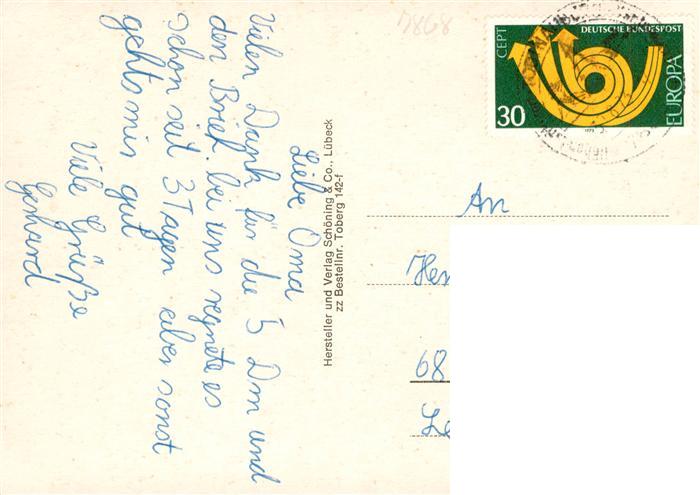 Liebe Oma
Vielen Dank für die 5 Dm und
den Brief. bei uns regnete es
schon seit 3 Tagen aber sonst
gehts mir gut
Viele Grüße
Gerhard
Hersteller und Verlag Schöning & Co., Lübeck
zz Bestellnr. Toberg 142-f
CEPT
DEUTSCHE BUNDESPOST
30
EUROPA
1973
An
68